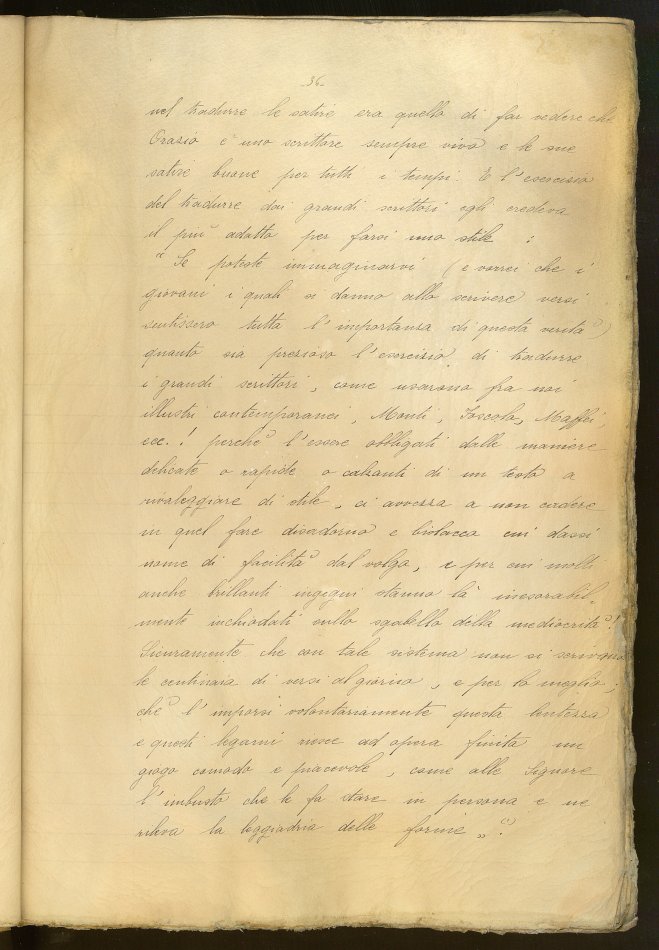 -36-
nel tradurre le satire era quello di far vedere che
Orazio è uno scrittore sempre vivo e le sue
satire buone per tutti i tempi. E l'esercizio
del tradurre dai grandi scrittori egli credeva
il più adatto per farsi uno stile :
"Se poteste immaginarvi (e vorrei che i
giovani i quali si danno allo scrivere versi
sentissero tutta l'importanza di questa verità)
quanto sia prezioso l'esercizio di tradurre
i grandi scrittori, come usarono fra noi
illustri contemporanei, Monti, Foscolo, Maffei,
ecc.! perchè l'essere obbligati dalle maniere
delicate o rapide o calzanti di un testo a
rivaleggiare di stile, ci avvezza a non cadere
in quel fare disadorno e bislacco cui dassi
nome di facilità dal volgo, e per cui molti
anche brillanti ingegni stanno là inesorabil-
mente inchiodati sullo sgabello della mediocrità!
Sicuramente che con tale sistema non si scrivono
le centinaia di versi al giorno, e per lo meglio;
chè l'imporsi volontariamente questa lentezza
e questi legami riesce ad opera finita un
giogo comodo e piacevole, come alle Signore
l'imbusto che le fa stare in persona e ne
rileva la leggiadria delle forme„ (1).